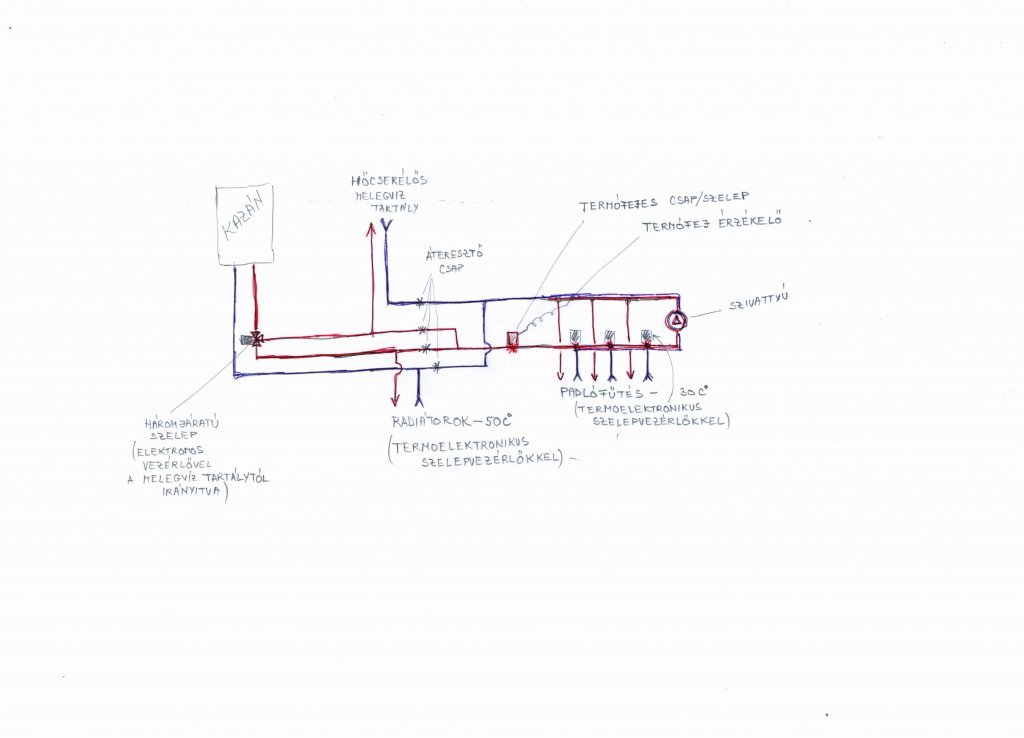 KAZÁN
HŐCSERÉLŐS
MELEGVIZ
TARTÁLY
ÁTERESZTŐ
CSAP
TERMÓFEJES CSAP/SZELEP
TERMÓFEJ ÉRZÉKELŐ
SZIVATTYÚ
HÁROMJÁRATÚ
SZELEP
(ELEKTROMOS
VEZÉRLŐVEL
A MELEGVÍZ TARTÁLYTÓL
IRÁNYITVA)
RADIÁTOROK – 50C°
(TERMOELEKTRONIKUS
SZELEPVEZÉRLŐKKEL) –
PADLÓFŰTÉS – 30C°
(TERMOELEKTRONIKUS
SZELEPVEZÉRLŐKKEL)